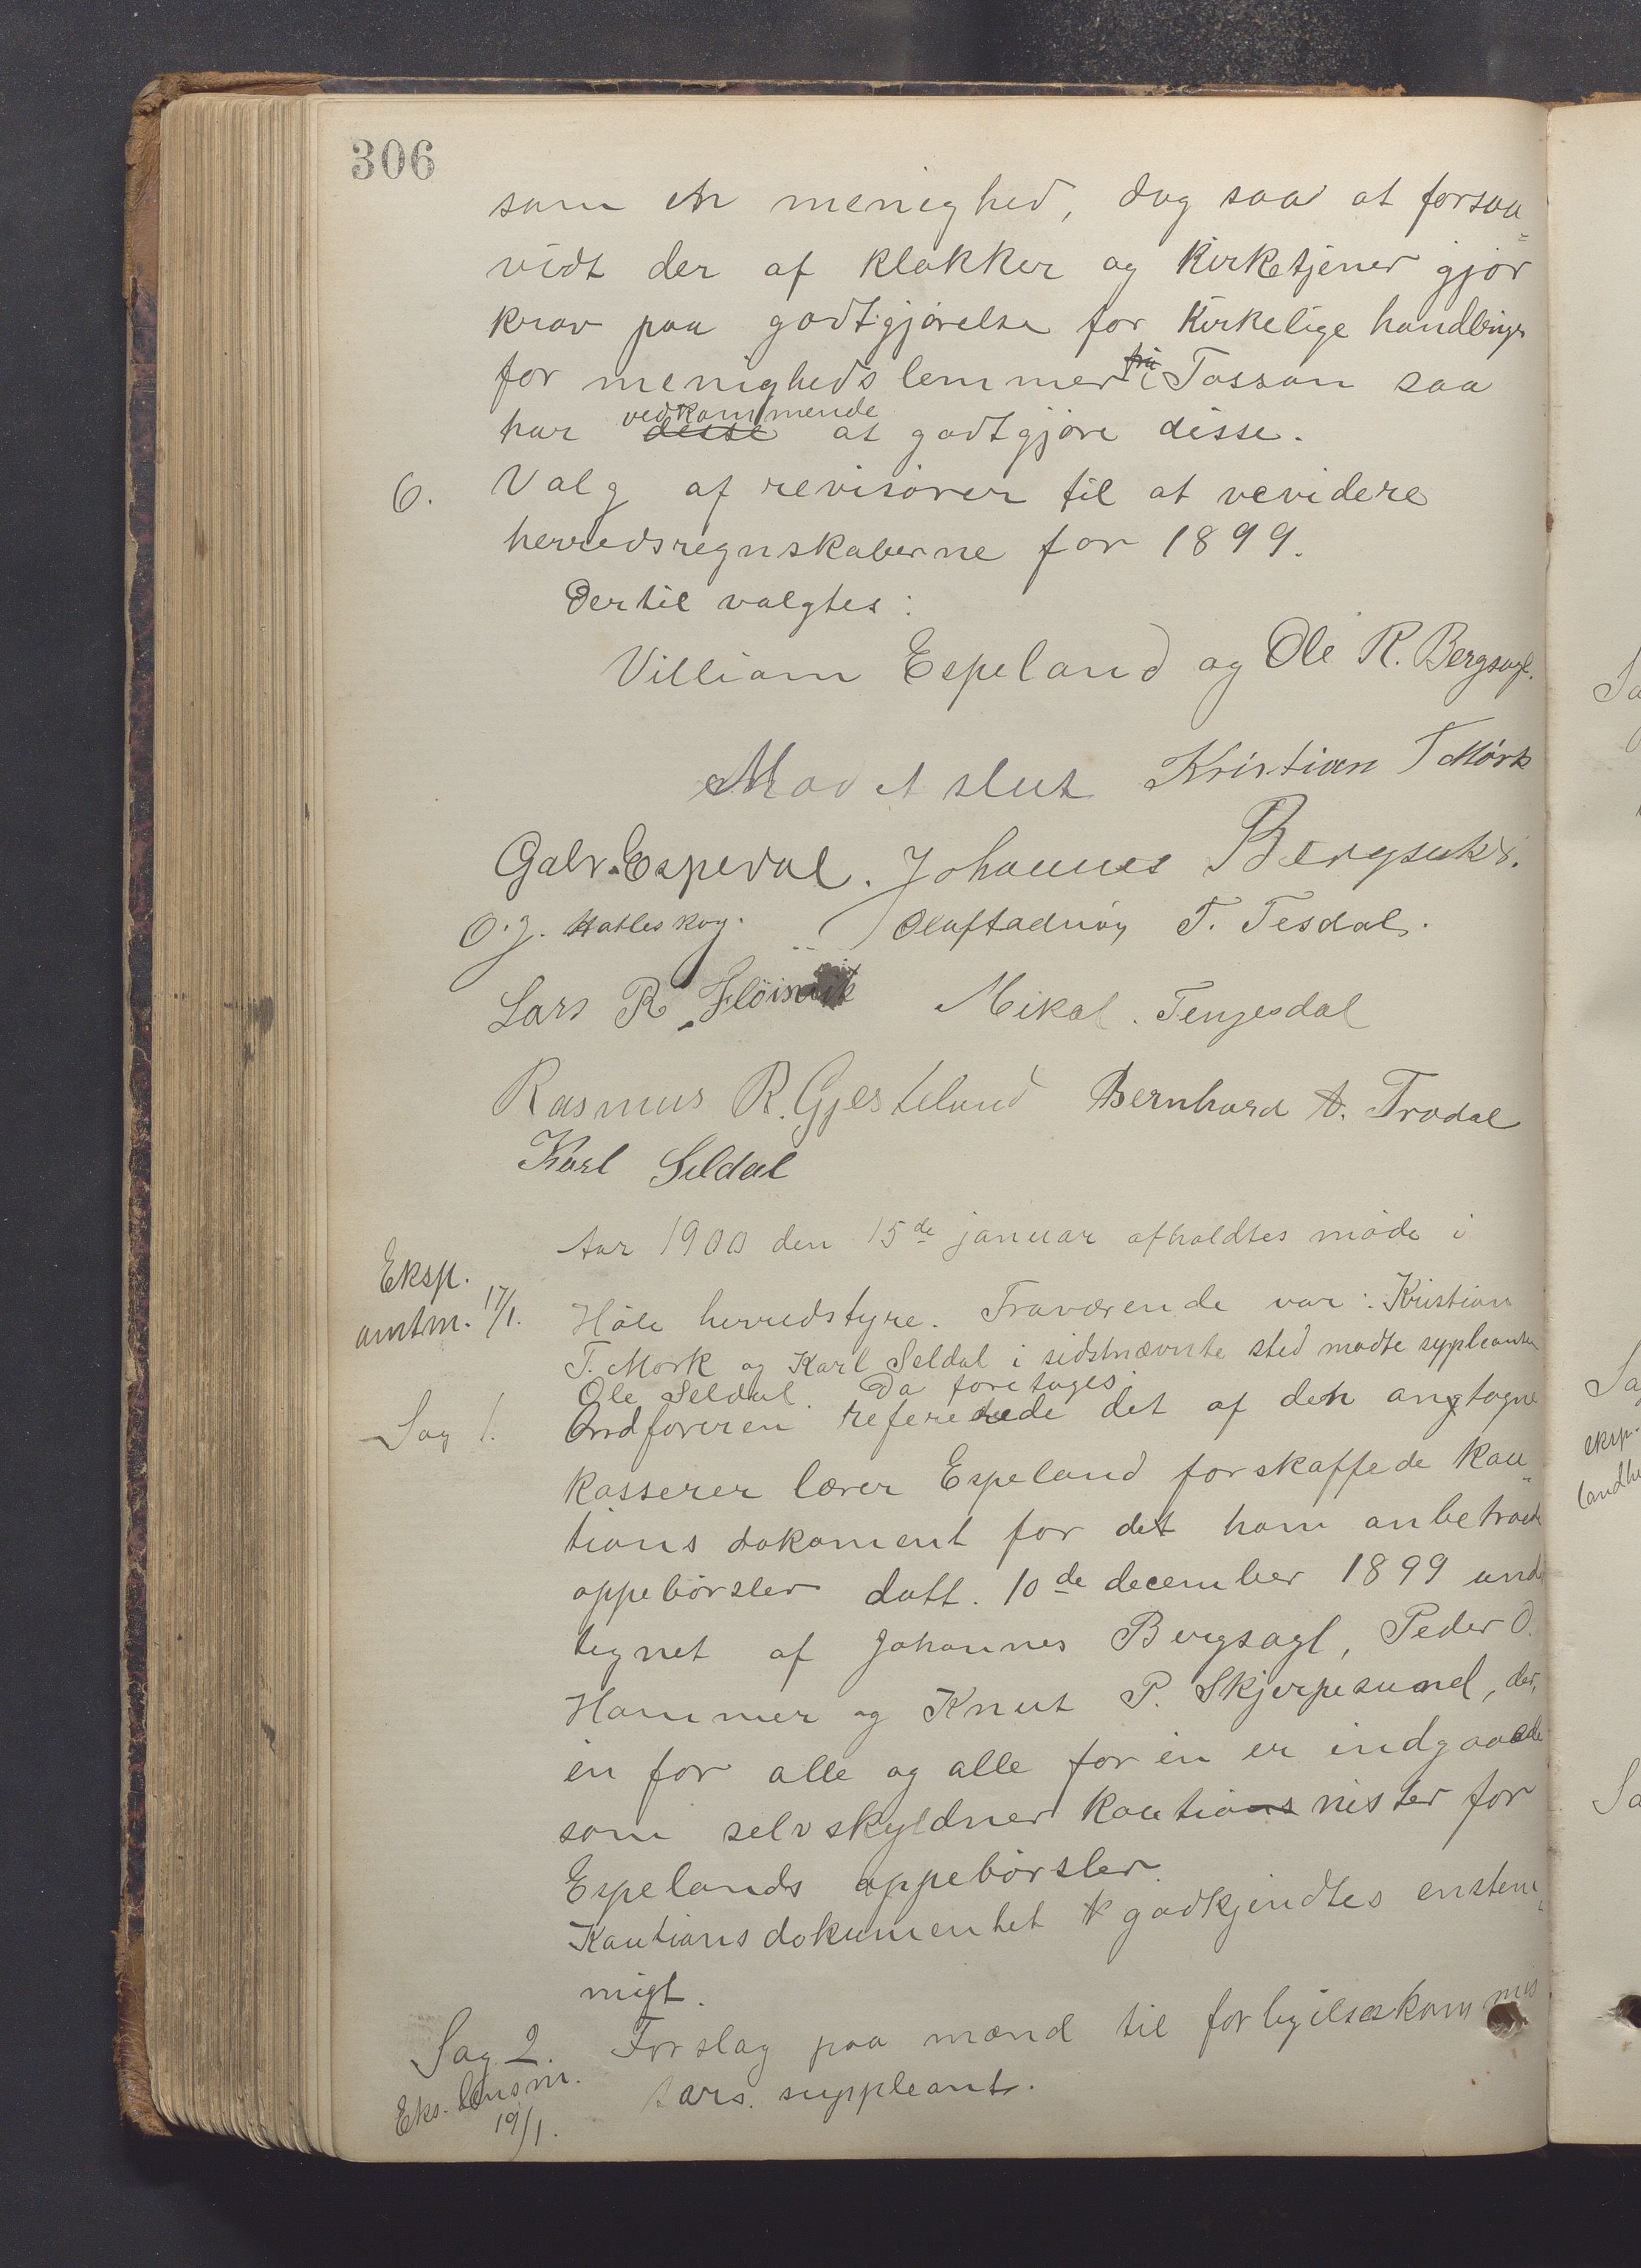 306
som en menighed, dog saa at forsaa=
vidt der af klokker og kirketjener gjør
krav paa godtgjørelse for kirkelige handlinger
for menighedslemmer fra i Tossan saa
har disse vedkommende at godtgjøre disse.
6. Valg af revisorer til at revidere
herredsregnskaberne for 1899.
Dertil valgtes:
Villiam Espeland og Ole R. Bergsagl.
Mødet slut Kristian T Mørk
Galv. Espedal. Johannes Bergsakl.
O. J. Hatleskog. Olaf Tadnøy T. Tesdal.
Lars R. Fløisvik Mikal. Tengesdal
Rasmus R. Gjesteland Bernhard A. Trodal
Karl Seldal
Aar 1900 den 15de januar afholdtes møde i
Eksp.
amtm. 17/1. Høle herredstyre. Fraværende var: Kristian
T. Mørk og Karl Seldal i sidstnævnte sted mødte suppleanten
Ole Seldal. Da foretages:
Sag 1. Ordføreren refererede det af den antagne
kasserer lærer Espeland forskaffede kau=
tions dokoment for det ham anbetroede
oppebørsler datt. 10de december 1899 under
tegnet af Johannes Bergsagl, Peder O.
Hammer og Knut P. Skjerpesund, der,
en for alle og alle for en er indgaaede
som selvskyldner kautionsnister for
Espelands oppebørsler.
Kautionsdokumentet godkjendtes enstem=
migt.
Sag 2. Forslag paa mænd til forligelseskommis
Eks. lensm. 19/1. særs. suppleant.